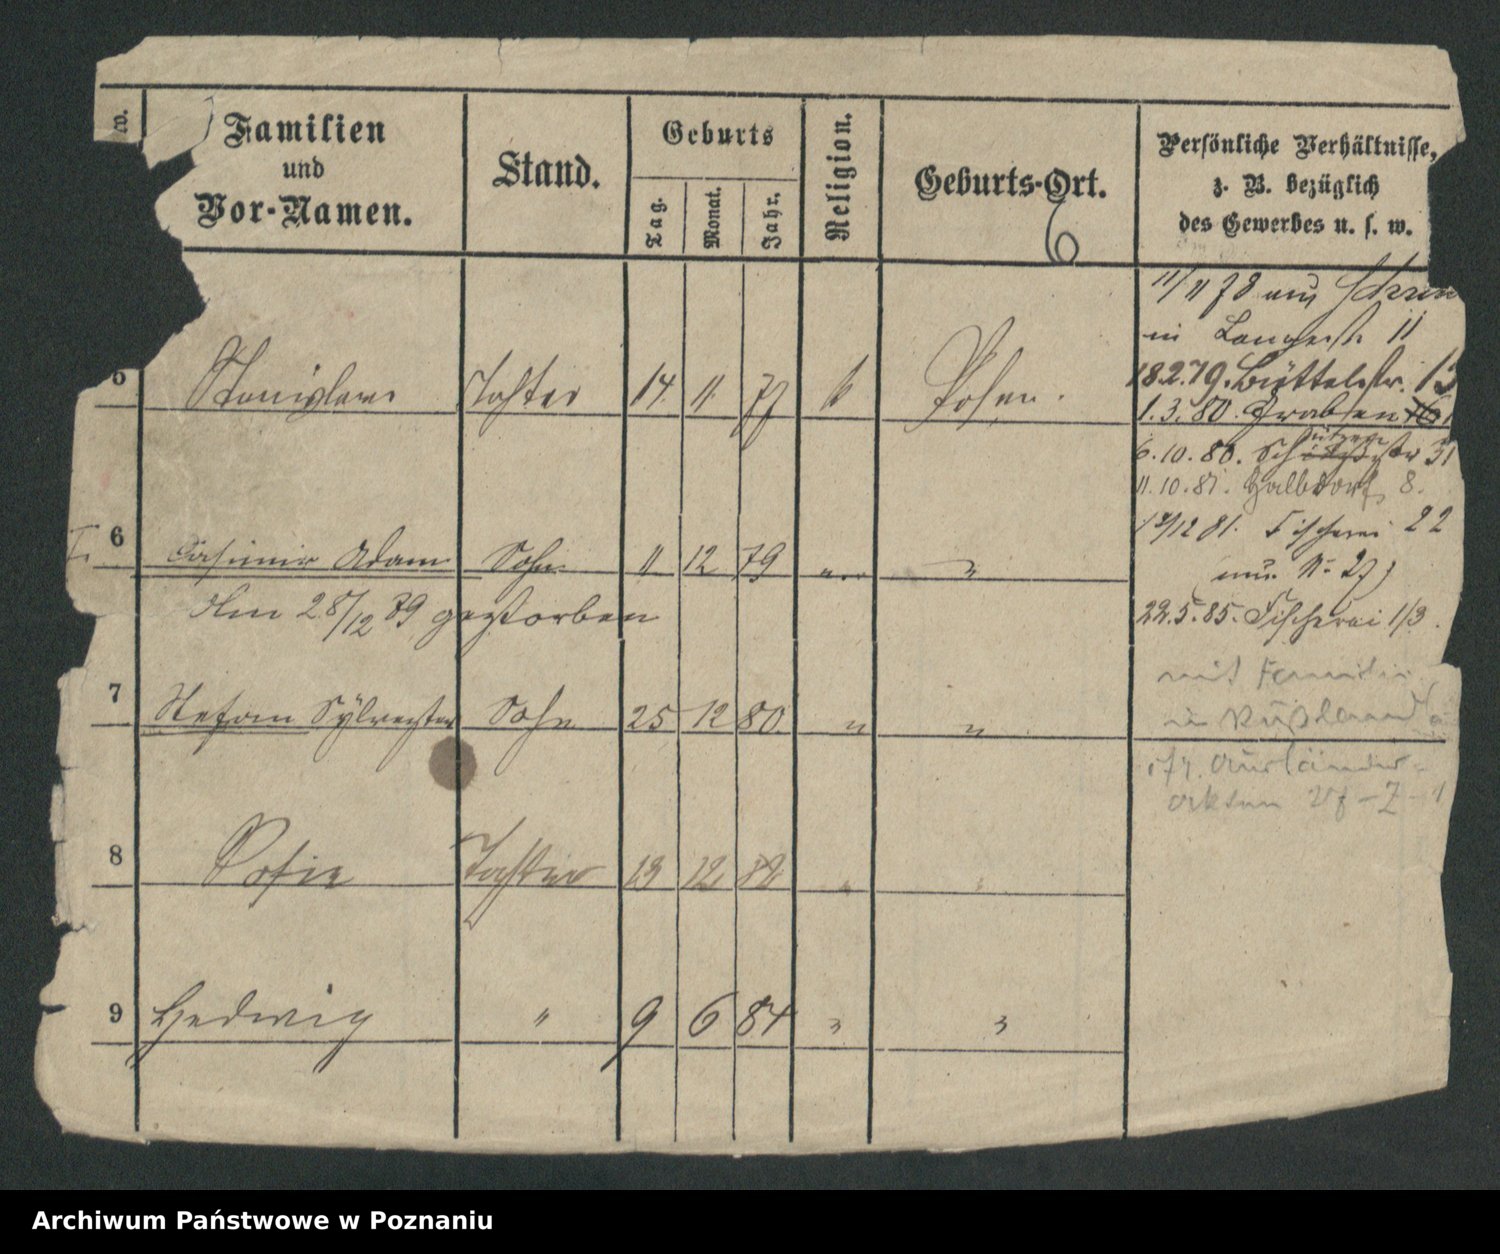 Familien
und
Vor-Namen.
Stand.
Geburts
Tag.
Monat.
Jahr.
Religion.
Geburts-Ort.
6
Persönliche Verhältnisse,
z. B. bezüglich
des Gewerbes u. s. w.
11/11 78 aus
in Langestr. 11
18.2.79. Büttelstr. 13
1.3.80. Graben
5 Stanislawa Tochter 14. 11. 77 k Posen.
6.10.80. Schützenstr 31
11.10.81. Halbdorf 8.
12/12 81. Fischerei 22
nur No 27)
6 Casimir Adam Sohn 11 12 79 " "
Am 28/12 89 gestorben
22.5.85. Fischerei 1/3.
mit Familie
in Rußland
7 Stefan Sylvester Sohn 25 12 80. " "
Ausländer-
akten
8 Sofie Tochter 13 12. 82 " "
9 Hedwig " 9 6 84 " "
Archiwum Państwowe w Poznaniu